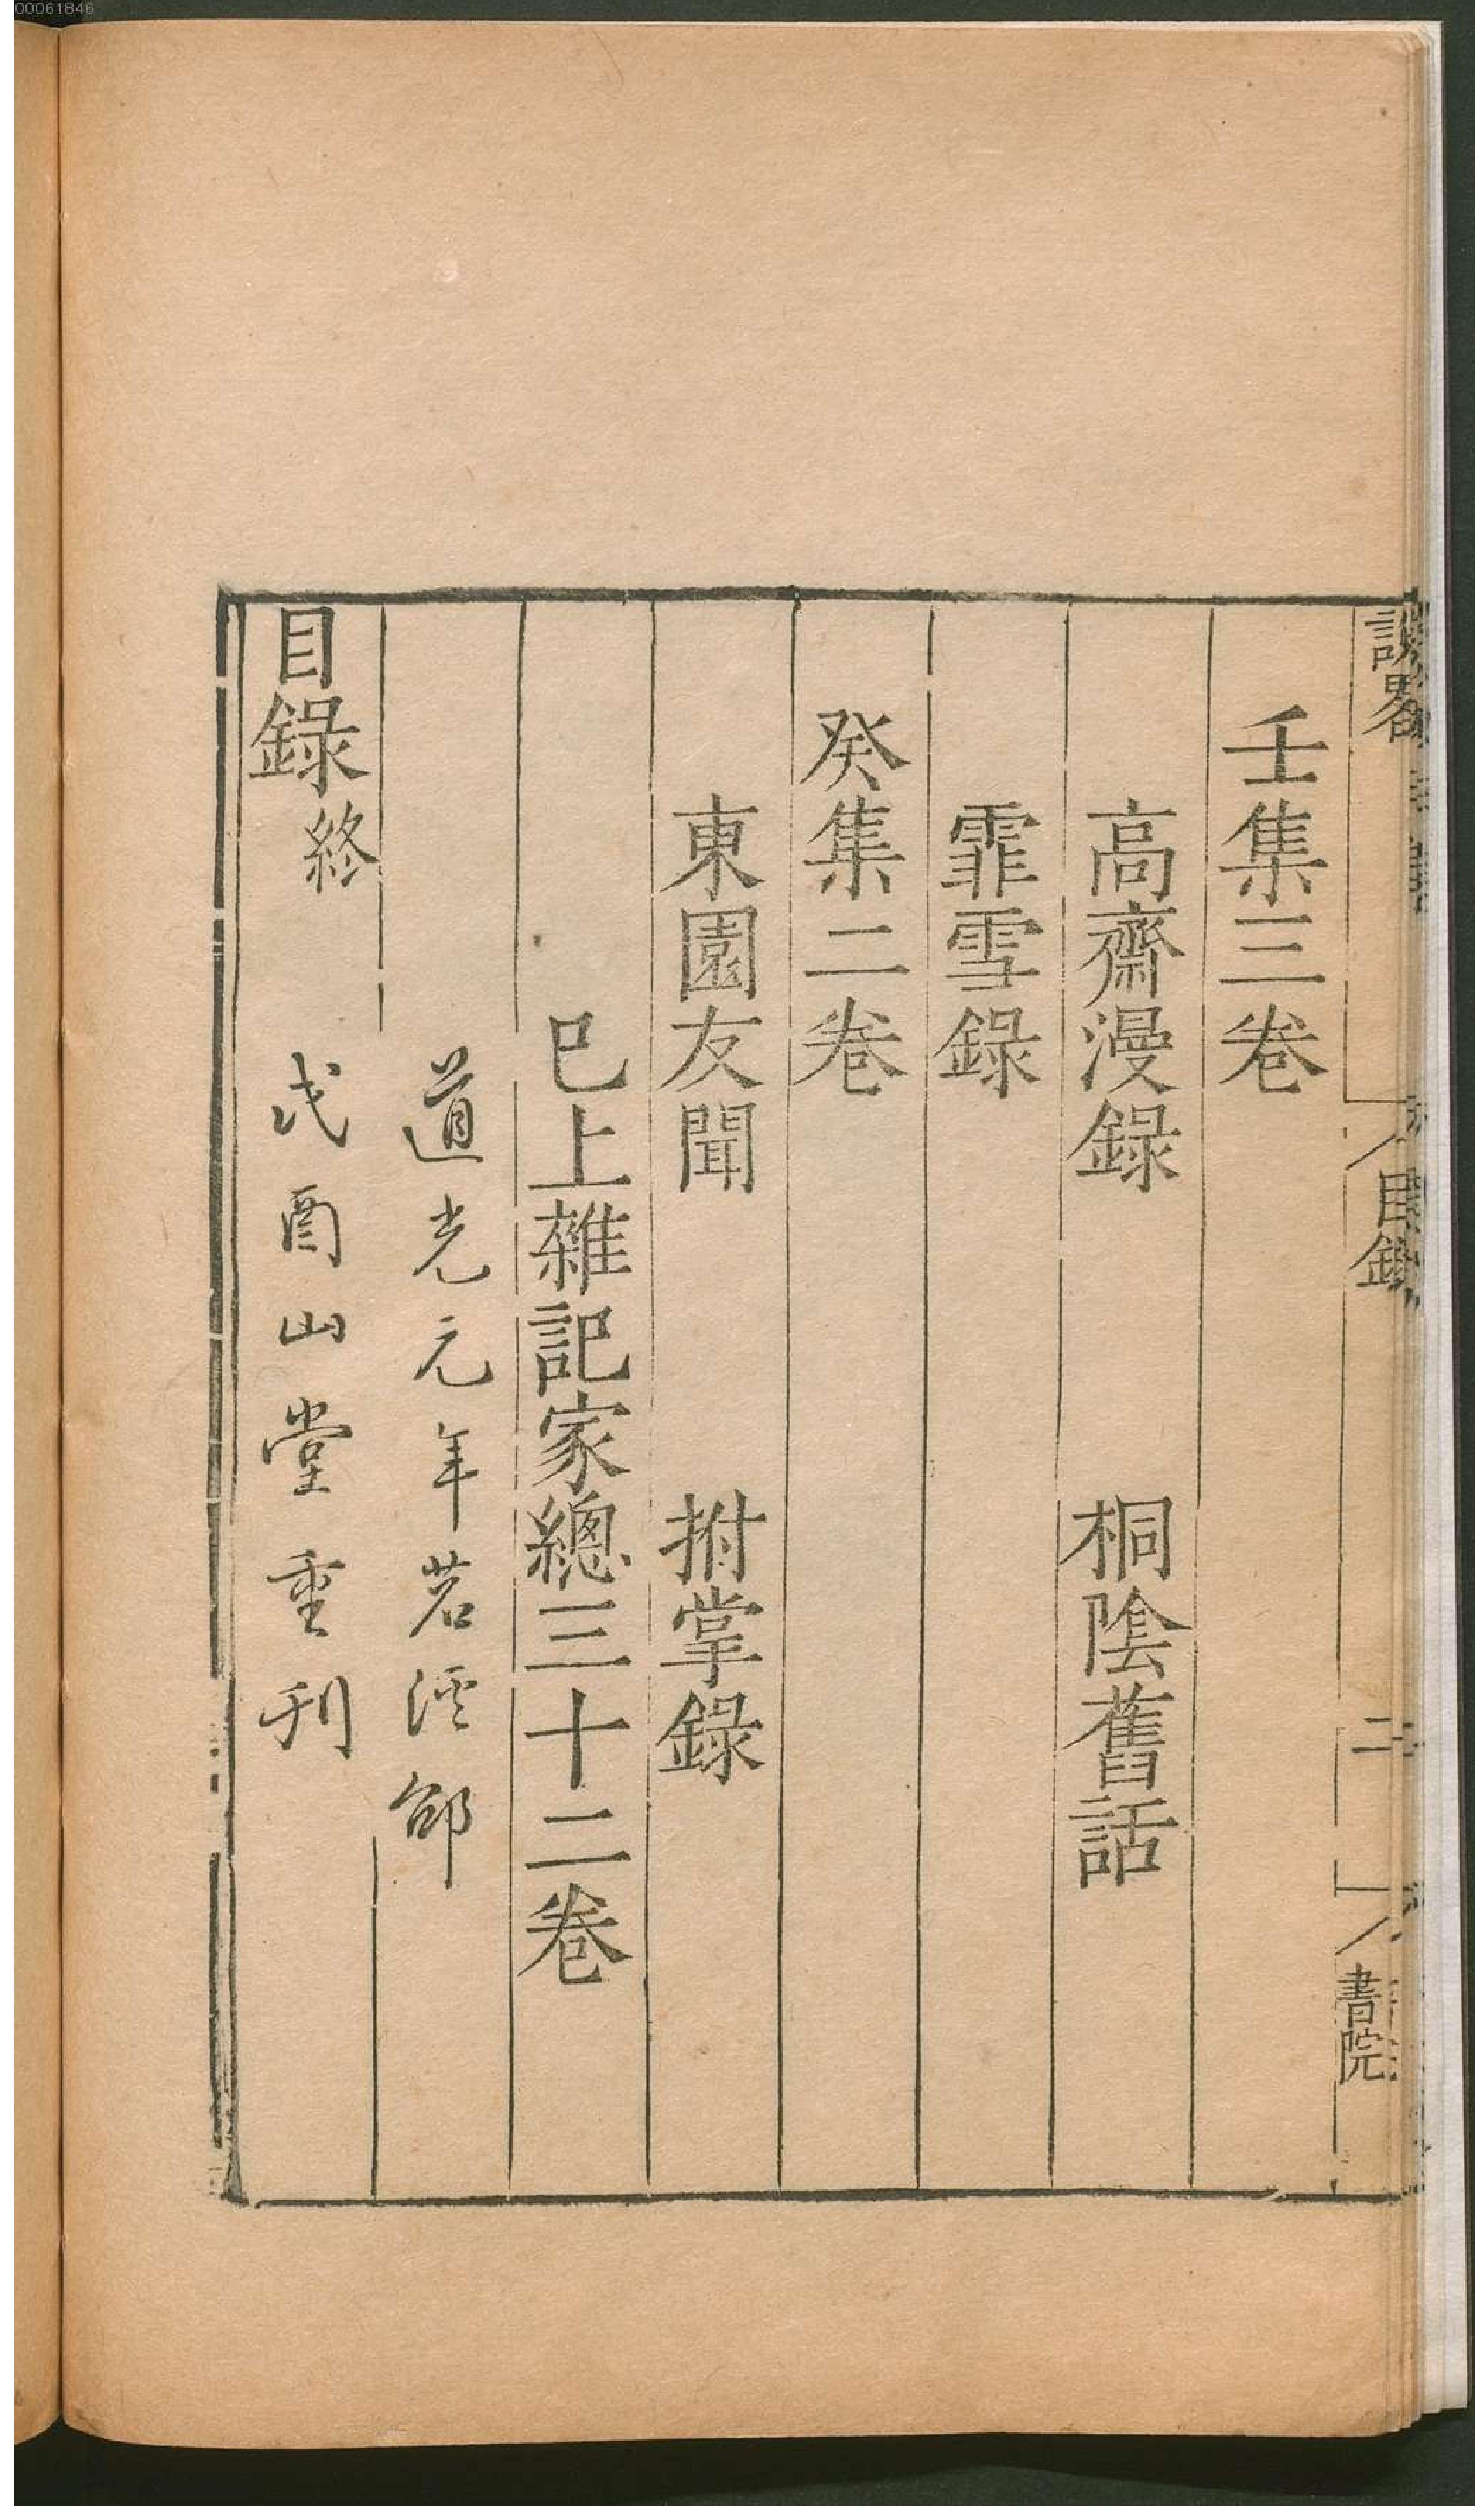 壬集三卷
高齋漫錄 桐陰舊話
霏雪錄
癸集二卷
東園友聞 拊掌錄
巳上雜記家總三十二卷
道光元年苕溪邵
氏酉山堂重刊
目錄終
說畧
目錄
二
書院
00061846